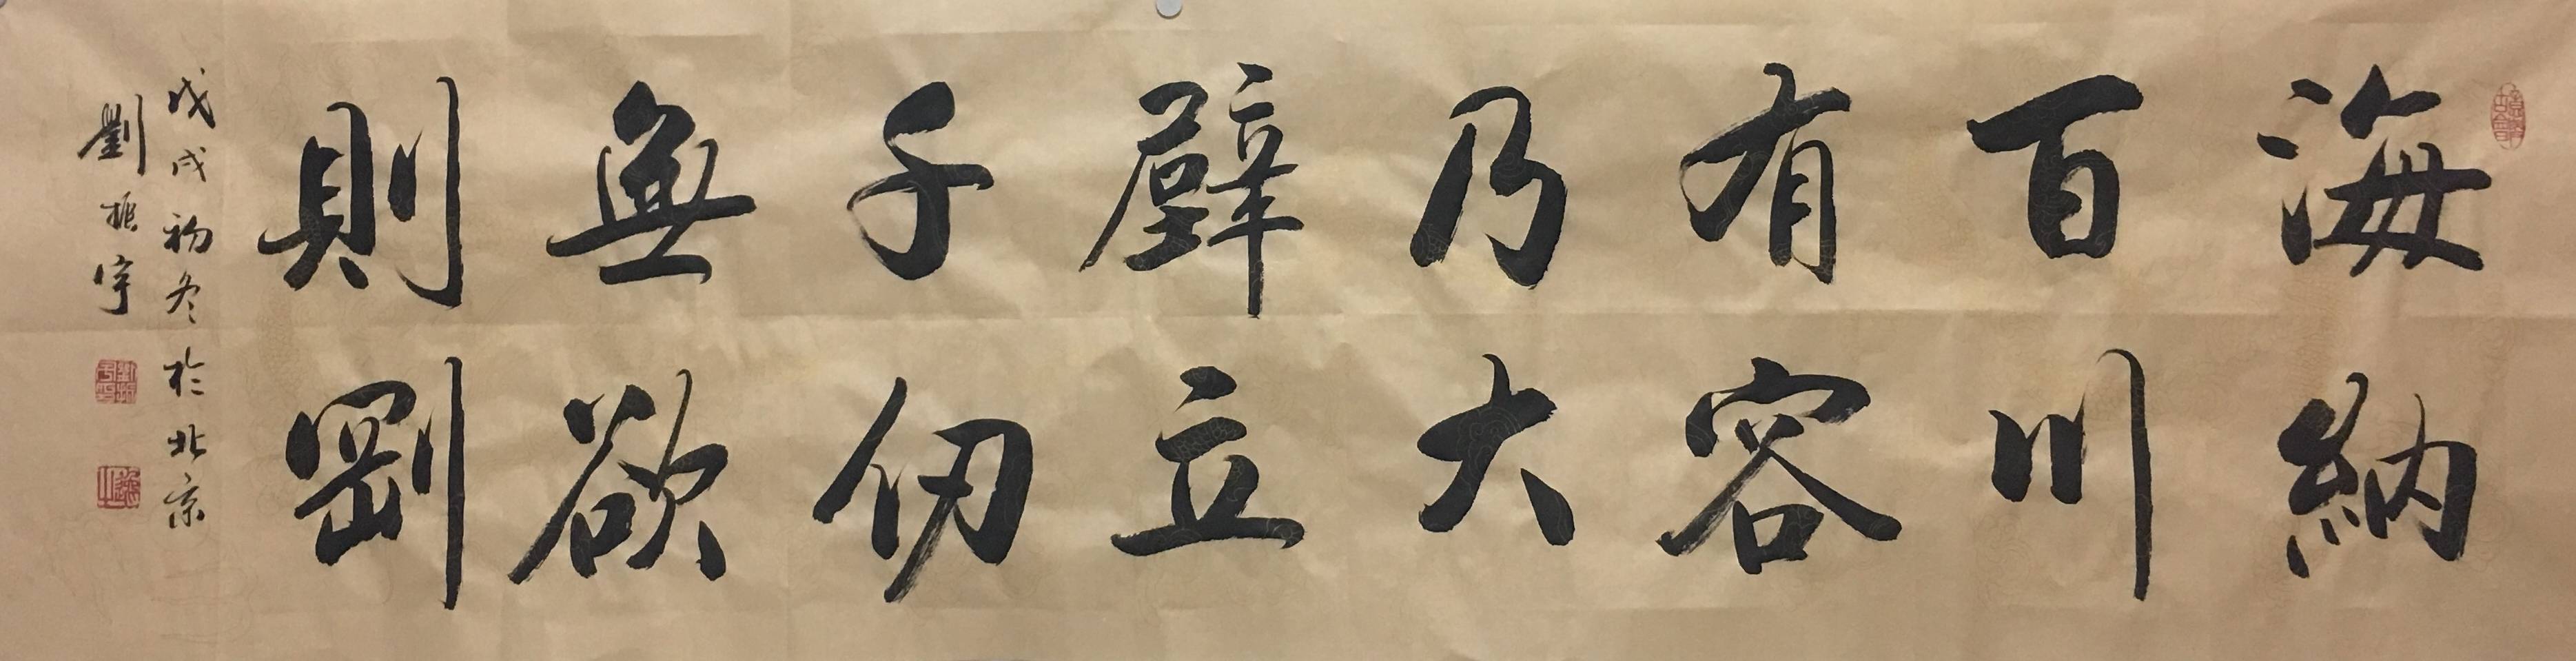 海納
百川
有容
乃大
壁立
千仞
無欲
則剛
戊戌初冬於北京
劉振宇